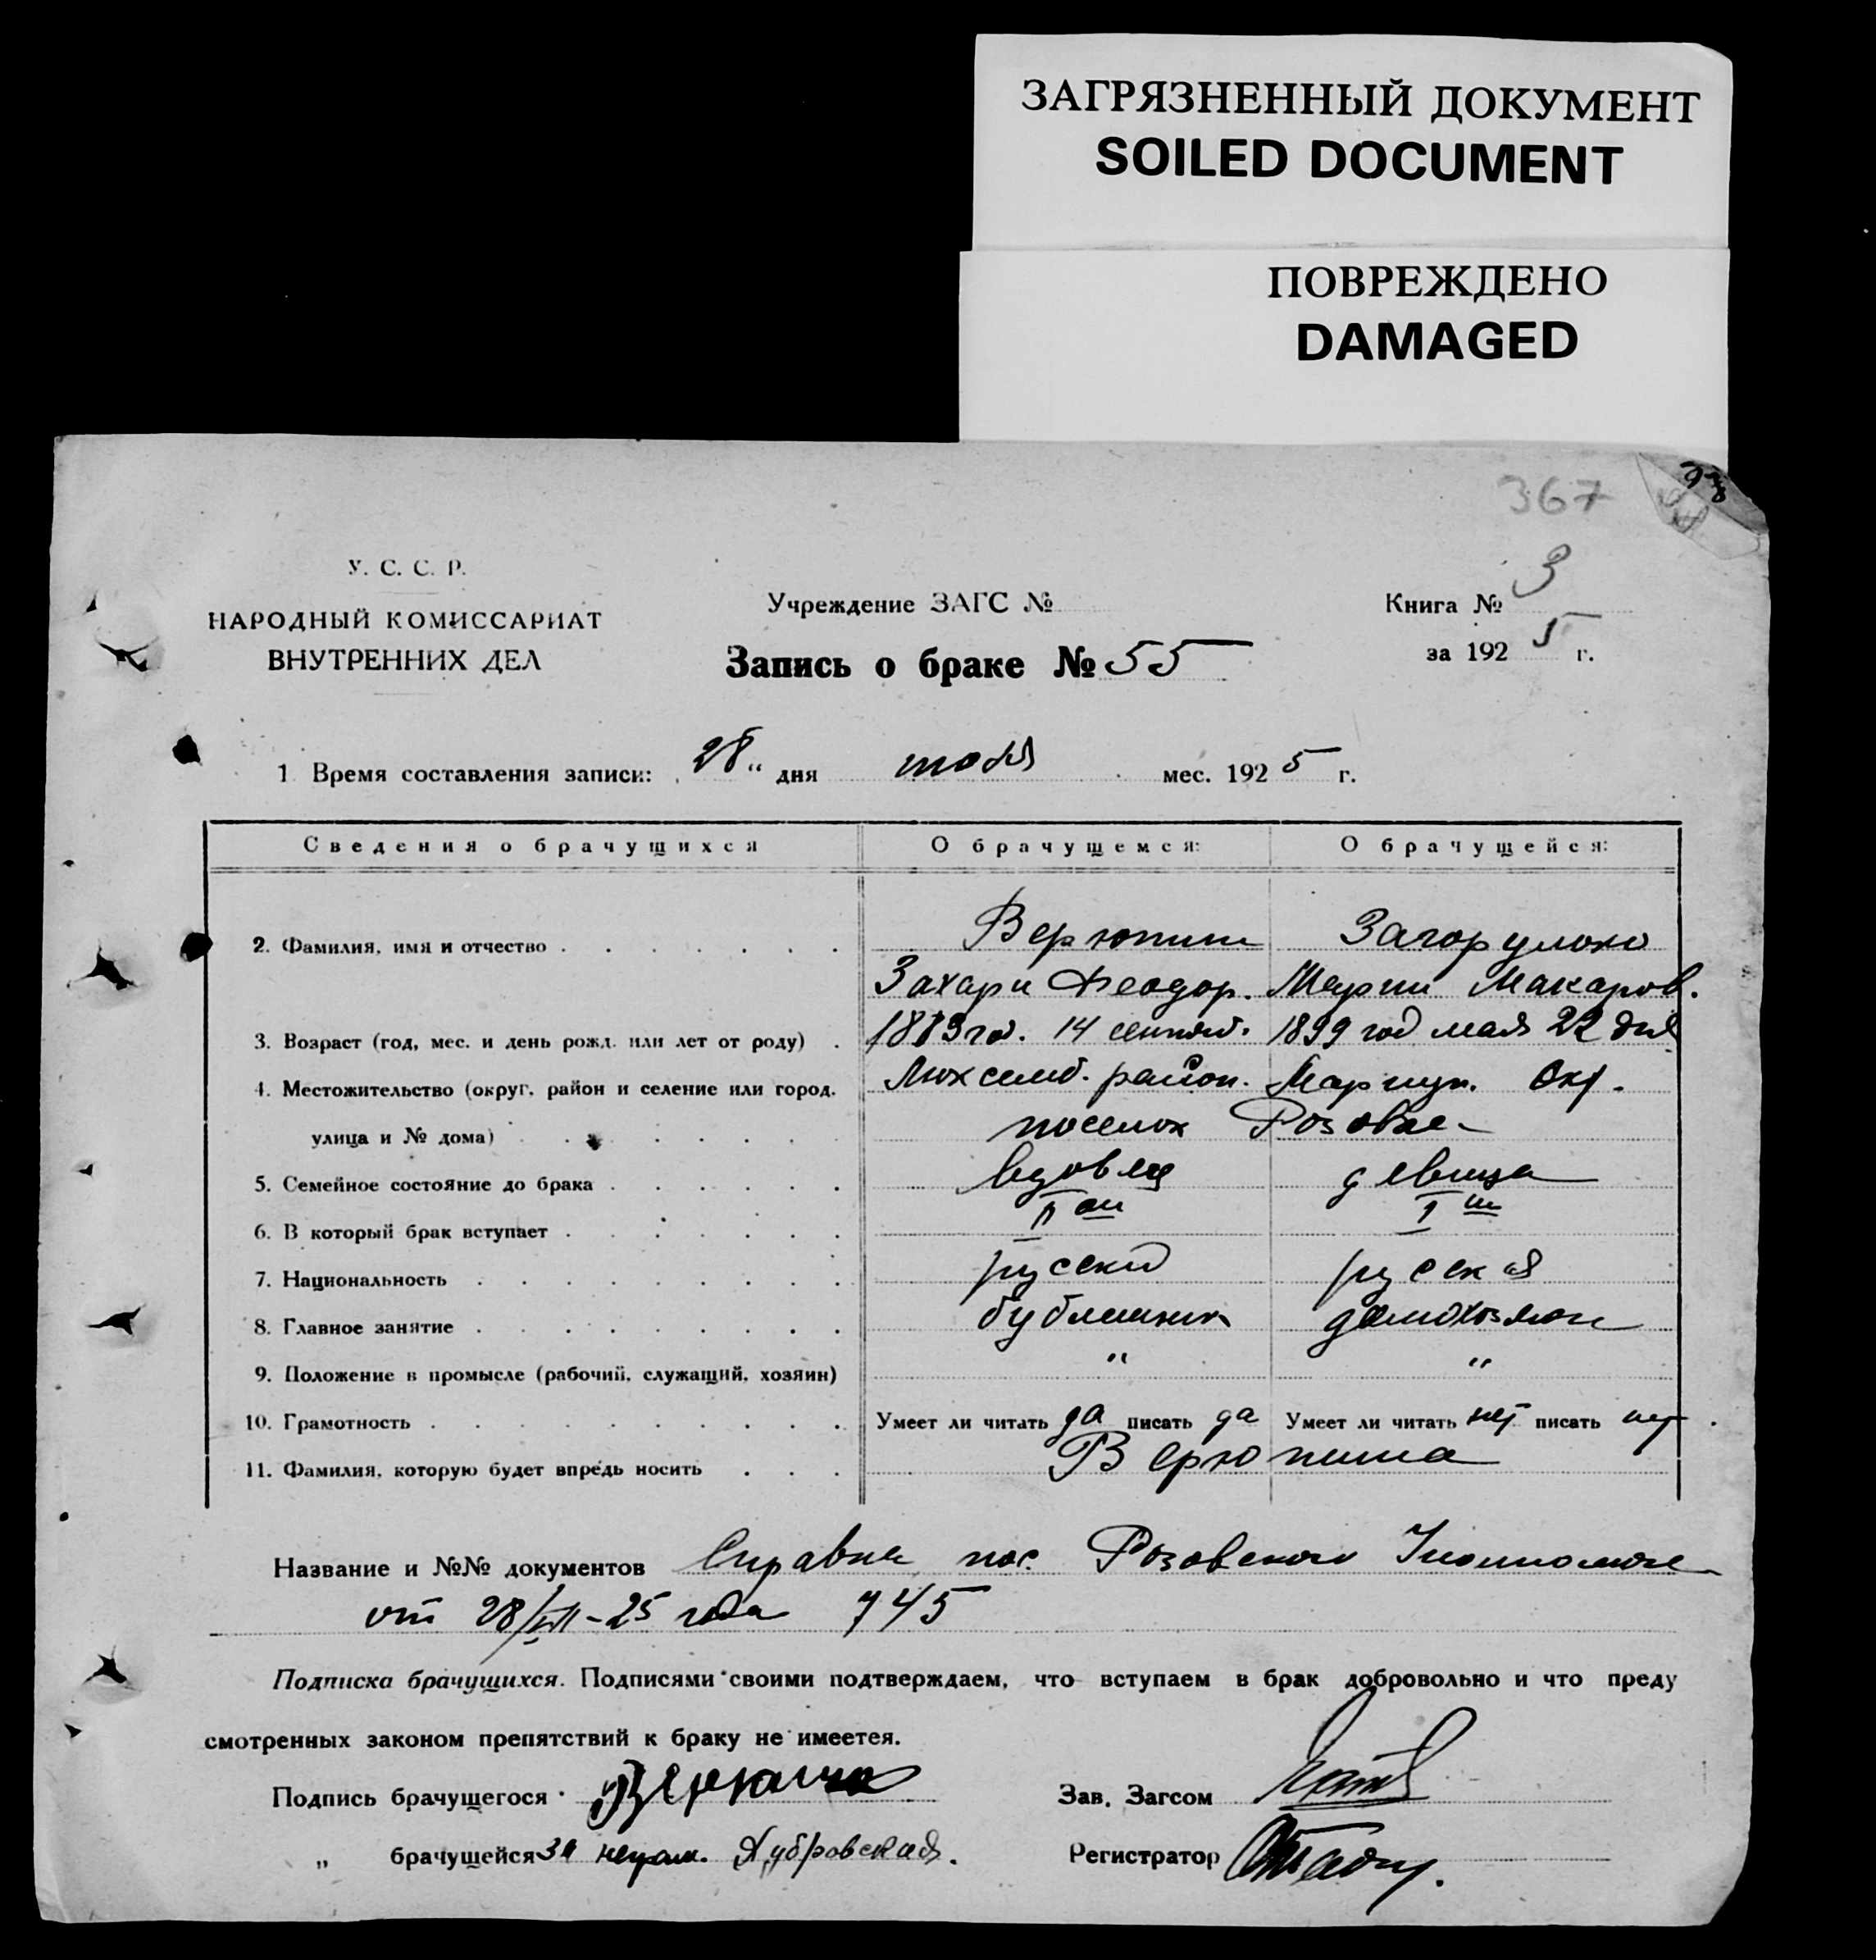 ЗАГРЯЗНЕННЫЙ ДОКУМЕНТ
SOILED DOCUMENT
ПОВРЕЖДЕНО
DAMAGED
367
У. С. С. Р.
НАРОДНЫЙ КОМИССАРИАТ
ВНУТРЕННИХ ДЕЛ
Учреждение ЗАГС №
Запись о браке № 55
Книга № 3
за 192 5 г.
1 Время составления записи: 28 " дня июля мес. 192 5 г.
Сведения о брачущихся О брачущемся: О брачущейся:
2. Фамилия, имя и отчество Верютин Загорулько
Захари Феодор. Марии Макаров.
3. Возраст (год, мес. и день рожд. или лет от роду) 14 сентяб. 1899 год мая 22 дня
4. Местожительство (округ, район и селение или город, Люксемб. район. Мариуп. Окр.
улица и № дома) поселок Розовке
5. Семейное состояние до брака вдовец девица
6. В который брак вступает II ой I ый
7. Национальность русский русская
8. Главное занятие бубличник домохозяйк
9. Положение в промысле (рабочий, служащий, хозяин) " "
10. Грамотность Умеет ли читать да писать да Умеет ли читать нет писать нет
11. Фамилия, которую будет впредь носить
Название и №№ документов Справка пос. Розовского
от 28/VII-25 года 745
Подписка брачущихся. Подписями своими подтверждаем, что вступаем в брак добровольно и что преду
смотренных законом препятствий к браку не имеетея.
Подпись брачущегося
Зав. Загсом
" брачущейся за неграм.
Регистратор